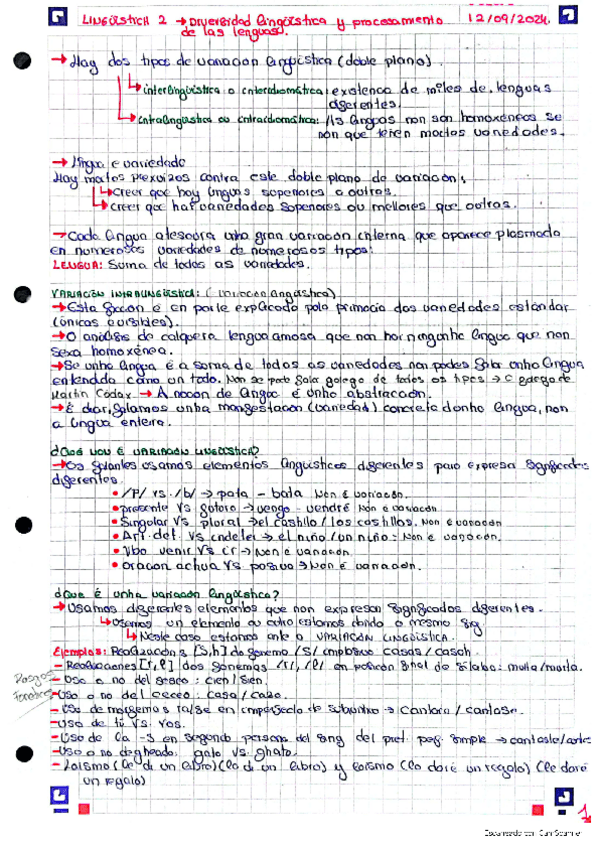 LINGÜÍSTICA 2 → Diversidad lingüística y procesamento 12/09/2024.
de las lenguas.
→ Hay dos tipos de variacion lingüistica (doble plano).
↳ interlingüistica o interidiomática: existencia de miles de lenguas
diferentes.
↳ intralingüistica ou intraidiomática: As linguas non son homoxéneas se
non que teñen moitas variedades.
→ lingua e variedade
Hay moitos prexuizos contra este doble plano de variacion:
↳ Creer que hay linguas superiores a outras.
↳ Creer que hai variedades superiores ou mellores que outras.
→ Cada lingua atesoura unha gran variacion interna que aparece plasmada
en numerosas variedades de numerosos tipos:
LENGUA: Suma de todas as variedades.
VARIACIÓN INTRALINGÜÍSTICA: (variacion lingüistica)
→ Esta ficcion é en parte explicada pola primacia das variedades estándar
(únicas visibles).
→ O análisis de calquera lengua amosa que non hai ningunha lingua que non
sexa homoxénea.
→ Se unha lingua é a suma de todas as variedades non podes falar unha lingua
entendida como un todo. Non se pode falar galego de todos os tipos → O galego de
Martin Codax. → A nocion de lingua é unha abstracción.
→ É dicir, falamos unha manifestacion (variedad) concreta dunha lingua, non
a lingua enteira.
¿Qué non é variación lingüística?
→ Os falantes usamos elementos lingüisticos diferentes para expresar significados
diferentes.
• /P/ vs. /b/ → pata - bata Non é variación.
• presente vs futuro → vengo - vendré Non é variación.
• Singular vs. plural → el castillo / los castillos. Non é variación
• Art. det. vs indet → el niño / un niño: Non é variación.
• Vbo venir vs ir → Non é variación.
• Oracion activa vs pasiva → Non é variación.
¿Que é unha variación lingüística?
→ Usamos diferentes elementos que non expresan significados diferentes.
↳ Usamos un elemento ou outro estamos dando o mesmo sig.
↳ Neste caso estamos ante a VARIACIÓN LINGÜÍSTICA.
Ejemplos: Realización [s,h] do fonema /s/ implosivo casas/casah.
- Realizaciones [r,l] dos fonemas /r/, /l/ en posición final de sílaba: multa/murta.
Rasgos
- Uso o no del seseo: cien/sien.
Fonéticos
- Uso o no del ceceo: casa/caza.
- Uso de morfemas ra/se en imperfecto de subxuntivo → cantara / cantase.
- Uso de tú vs. vos.
- Uso de la -s en segunda persona del sing del pret. perf. simple → cantaste/
- Uso o no de gheada: gato vs. ghato.
- Laísmo (la di un libro) (le di un libro) y loísmo (lo daré un regalo) (le daré
un regalo)
1
Escaneado con CamScanner